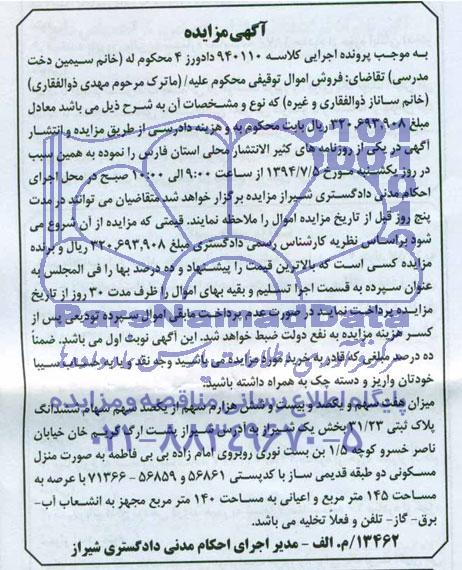 آگهی مزایده
به موجب پرونده اجرایی کلاسه ۹۴۰۱۱۰ دادورز ۴ محکوم له (خانم سیمین دخت
مدرسی) تقاضای: فروش اموال توقیفی محکوم علیه/ (ماترک مرحوم مهدی ذوالفقاری)
(خانم ساناز ذوالفقاری و غیره) که نوع و مشخصات آن به شرح ذیل می باشد معادل
مبلغ ۳۲۰,۶۹۳,۹۰۸ ریال بابت محکوم به و هزینه دادرسی از طریق مزایده و انتشار
آگهی در یکی از روزنامه های کثیر الانتشار محلی استان فارس را نموده به همین سبب
در روز یکشنبه مورخ ۱۳۹۴/۷/۵ از ساعت ۹:۰۰ الی ۱۰:۰۰ صبح در محل اجرای
احکام مدنی دادگستری شیراز مزایده برگزار خواهد شد متقاضیان می توانند در مدت
پنج روز قبل از تاریخ مزایده اموال را ملاحظه نمایند. قیمتی که مزایده از آن شروع می
شود براساس نظریه کارشناس رسمی دادگستری مبلغ ۳۲۰,۶۹۳,۹۰۸ ریال و برنده
مزایده کسی است که بالاترین قیمت را پیشنهاد و ده درصد بها را فی المجلس به
عنوان سپرده به قسمت اجرا تسلیم و بقیه بهای اموال را ظرف مدت ۳۰ روز از تاریخ
مزایده پرداخت نمایند در صورت عدم پرداخت مابقی اموال سپرده تودیعی پس از
کسر هزینه مزایده به نفع دولت ضبط خواهد شد. این آگهی نوبت اول می باشد. ضمنا
ده درصد مبلغی که قادر به خرید مورد مزایده می باشید وجه نقد و یا به حساب سیبا
خودتان واریز و دسته چک به همراه داشته باشید.
میزان هفت سهم و یکصد و بیست و شش هزارم سهم از یکصد سهم سهام ششدانگ
پلاک ثبتی ۳۱/۲۳ بخش یک شیراز به آدرس شیراز پشت ارگ کریم خان خیابان
ناصر خسرو کوچه ۱/۵ بن بست نوری روبروی امام زاده بی بی فاطمه به صورت منزل
مسکونی دو طبقه قدیمی ساز با کدپستی ۵۶۸۶۱ و ۵۶۸۵۹ - ۷۱۳۶۶ با عرصه به
مساحت ۱۴۵ متر مربع و اعیانی به مساحت ۱۴۰ متر مربع مجهز به انشعاب آب-
برق- گاز- تلفن و فعلاً تخلیه می باشد.
۱۳۴۶۲/م. الف - مدیر اجرای احکام مدنی دادگستری شیراز
ParsNamadData
پایگاه اطلاع رسانی مناقصه و مزایده
۰۲۱-۸۸۳۴۹۶۷۰-۵